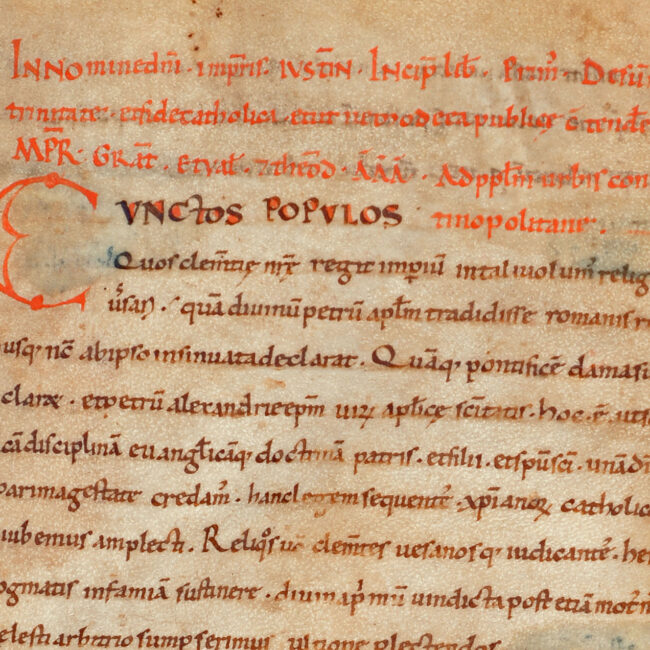 INNomine dñi · impr̃is · IVSTIN · Incip̃ lib̃ · Prim̃ · De sũ
trinitate · et fide catholica · et ut nemo de ea publice c̃tende
MP̃R · GRAT̃ · et val̃ · ⁊ theod̃ · ÃÃÃ · Ad pp̃lm̃ urbis con
CVNCTOS POPVLOS tinopolitane ·
Quos clem̃tię nr̃ę regit imp̃iũ in tali volum̃ relig
ũsari · quã divinũ petrũ ap̃lm̃ tradidisse romanis r
usq; nc̃ ab ipso insinuata declarat · Quãq; pontificẽ damasu
clarę · et petrũ alexandrię ep̃m virũ ap̃licę sc̃itatis · hoc · ẽ · ut s
cã disciplinã euangl̃icãq; doctrinã patris · et filii · et sp̃us sc̃i · unã d
parimagestate credam̃ · hanc legem sequentẽ xp̃ianoꝝ catholic
iubemus amplecti · Reliq̃s ũ demẽtes vesanosq; iudicantẽ · he
ogmatis infamiã sustinere · divina p̃mũ vindicta post etiã mot
elesti arbitrio sumpserimus ultione plectendos